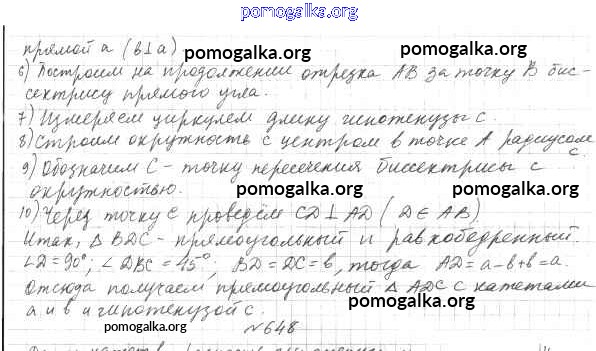 pomogalka.org
прямой a (b⊥a)
pomogalka.org pomogalka.org
6) Построим на продолжении отрезка AB за точку B бис-
сектрису прямого угла.
7) Измеряем циркулем длину гипотенузы c.
8) Строим окружность с центром в точке A радиусом
c.
9) Обозначим C - точку пересечения биссектрисы с
окружностью.
pomogalka.org pomogalka.org
10) Через точку C проведём CD⊥AD (D∈AB)
Итак, △BDC - прямоугольный и равнобедренный.
∠D=90°, ∠DBC=45°; BD=DC=b, тогда AD=a-b+b=a.
Отсюда получаем прямоугольный △ADC с катетами
a и b и гипотенузой c.
pomogalka.org pomogalka.org
pomogalka.org
№648